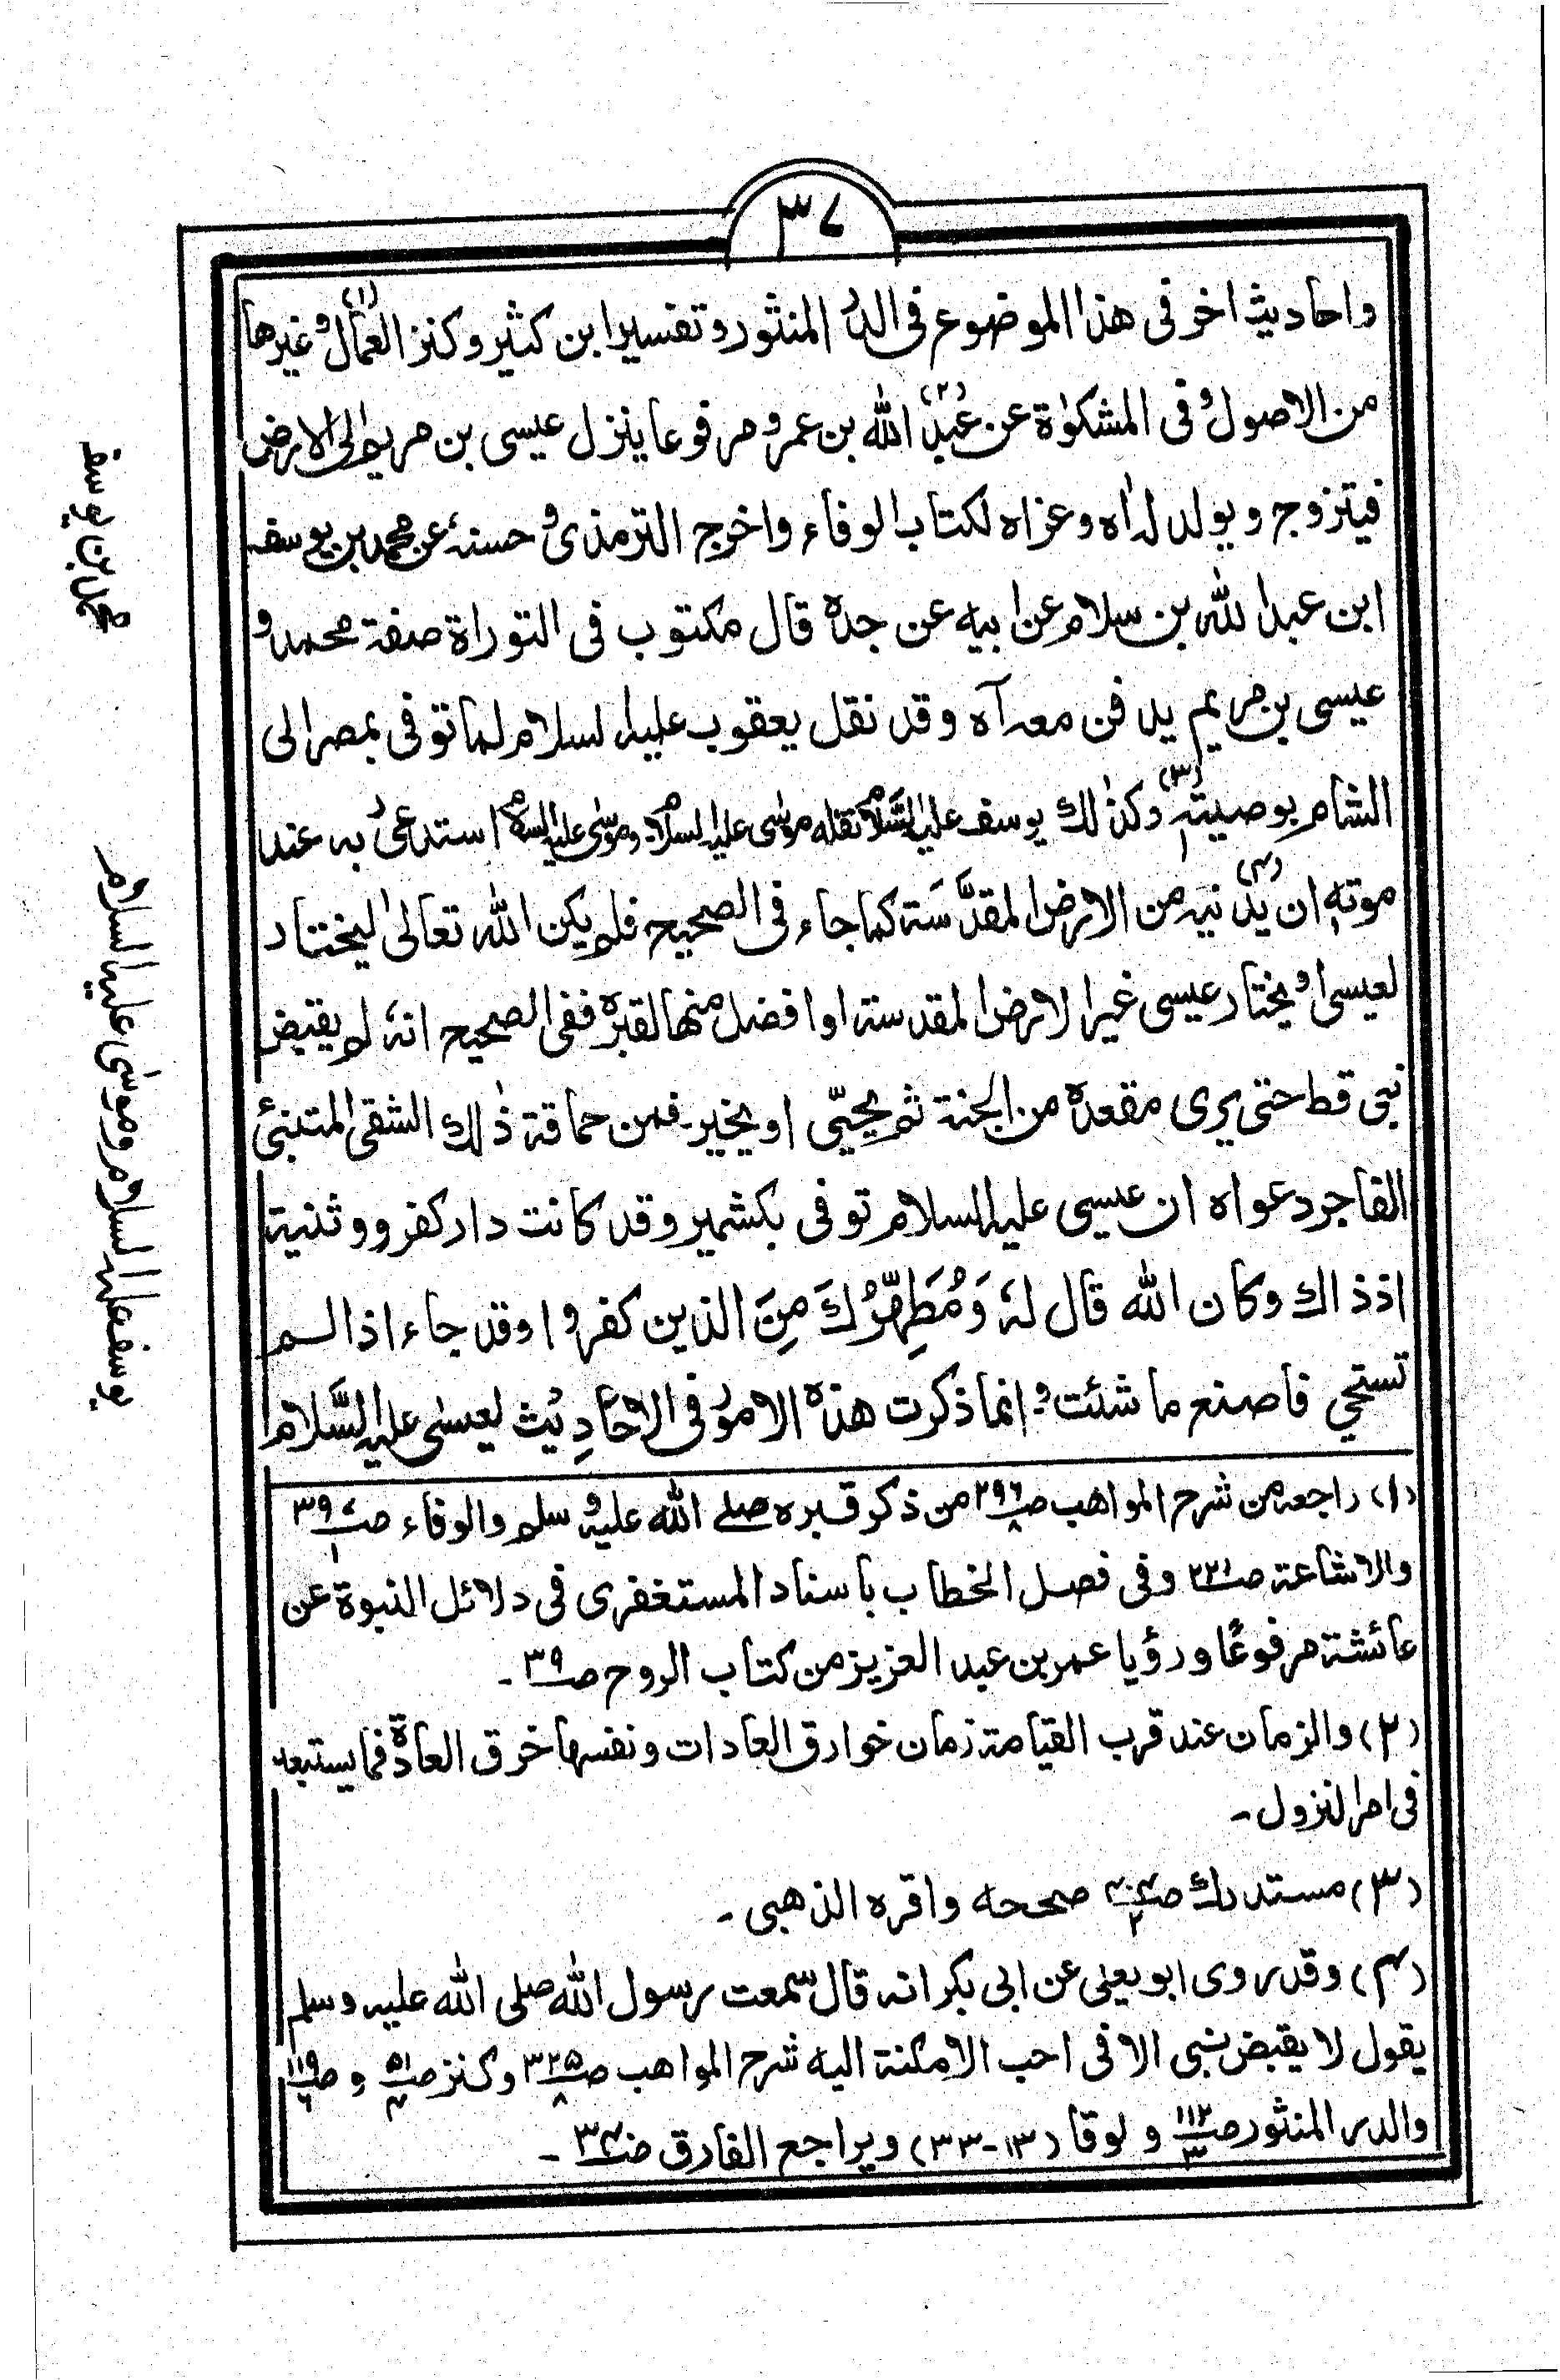 ٣٧
واحاديث اخر فى هذا الموضوع فى الدر المنثور وتفسير ابن كثير وكنز العمال(١) وغيرها
من الاصول وفى المشكوٰة عن عبد(٢) الله بن عمرو مرفوعا ينزل عيسى بن مريم الى الارض
فيتزوج ويولد له اه وعزاه لكتاب الوفاء واخرج الترمذى وحسنهٗ عن محمد بن يوسف
ابن عبد الله بن سلام عن ابيه عن جده قال مكتوب فى التوراة صفة محمد و
عيسى بن مريم يدفن معه آه وقد نقل يعقوب عليه السلام لما توفى بمصر الى
الشام بوصيته(٣) وكذٰلك يوسف عليه السَّلام نقله موسٰى عليه السلام وموسٰى عليه السلام استدعى ربه عند
موته ان يدنيه(٤) من الارض المقدَّسَة كما جاء فى الصحيح فلم يكن الله تعالىٰ ليختار
لعيسى او يختار عيسى غير الارض المقدسة او افضل منها لقبره ففى الصحيح انهٗ لم يقبض
نبى قط حتى يرى مقعده من الجنة ثم يحيّى او يخير۔ فمن حماقة ذٰلك الشقى المتنبئ
الفاجر دعواه ان عيسى عليه السلام توفى بكشمير وقد كانت دار كفر ووثنية
اذ ذاك وكان الله قال لهٗ وَمُطَهِّرُكَ مِنَ الذين كفروا وقد جاء اذا لم
تستحي فاصنع ما شئت۔ وانما ذكرت هذه الامور فى الاحَادِيْث لعيسٰى عليه السَّلام
(١) راجعه من شرح المواهب ص٢٩٦/٨ من ذكر قبره صلے الله عليه وسلم والوفاء ص٣٩/١
والاشاعة ص٢٣١ وفى فصل الخطاب باسناد المستغفرى فى دلائل النبوة عن
عائشة مرفوعًا ورؤيا عمر بن عبد العزيز من كتاب الروح ص٣٩۔
(٢) والزمان عند قرب القيامة زمان خوارق العادات ونفسها خرق العادة فما يستبعد
فى امر النزول۔
(٣) مستدرك ص٤٠٤/٢ صححه واقره الذهبى۔
(٤) وقد روى ابو يعلى عن ابى بكر انه قال سمعت رسول الله صلى الله عليه وسلم
يقول لا يقبض نبى الا فى احب الامكنة اليه شرح المواهب ص٣٢٥/٨ وكنز ص٥١/٤ و ص١١٩/٦
والدر المنثور ص١١٢/٣ و لوقا (١٣-٣٣) ويراجع الفارق ص٣٤۔
محمد بن يوسف
يوسف عليه السلام وموسٰى عليهما السلام